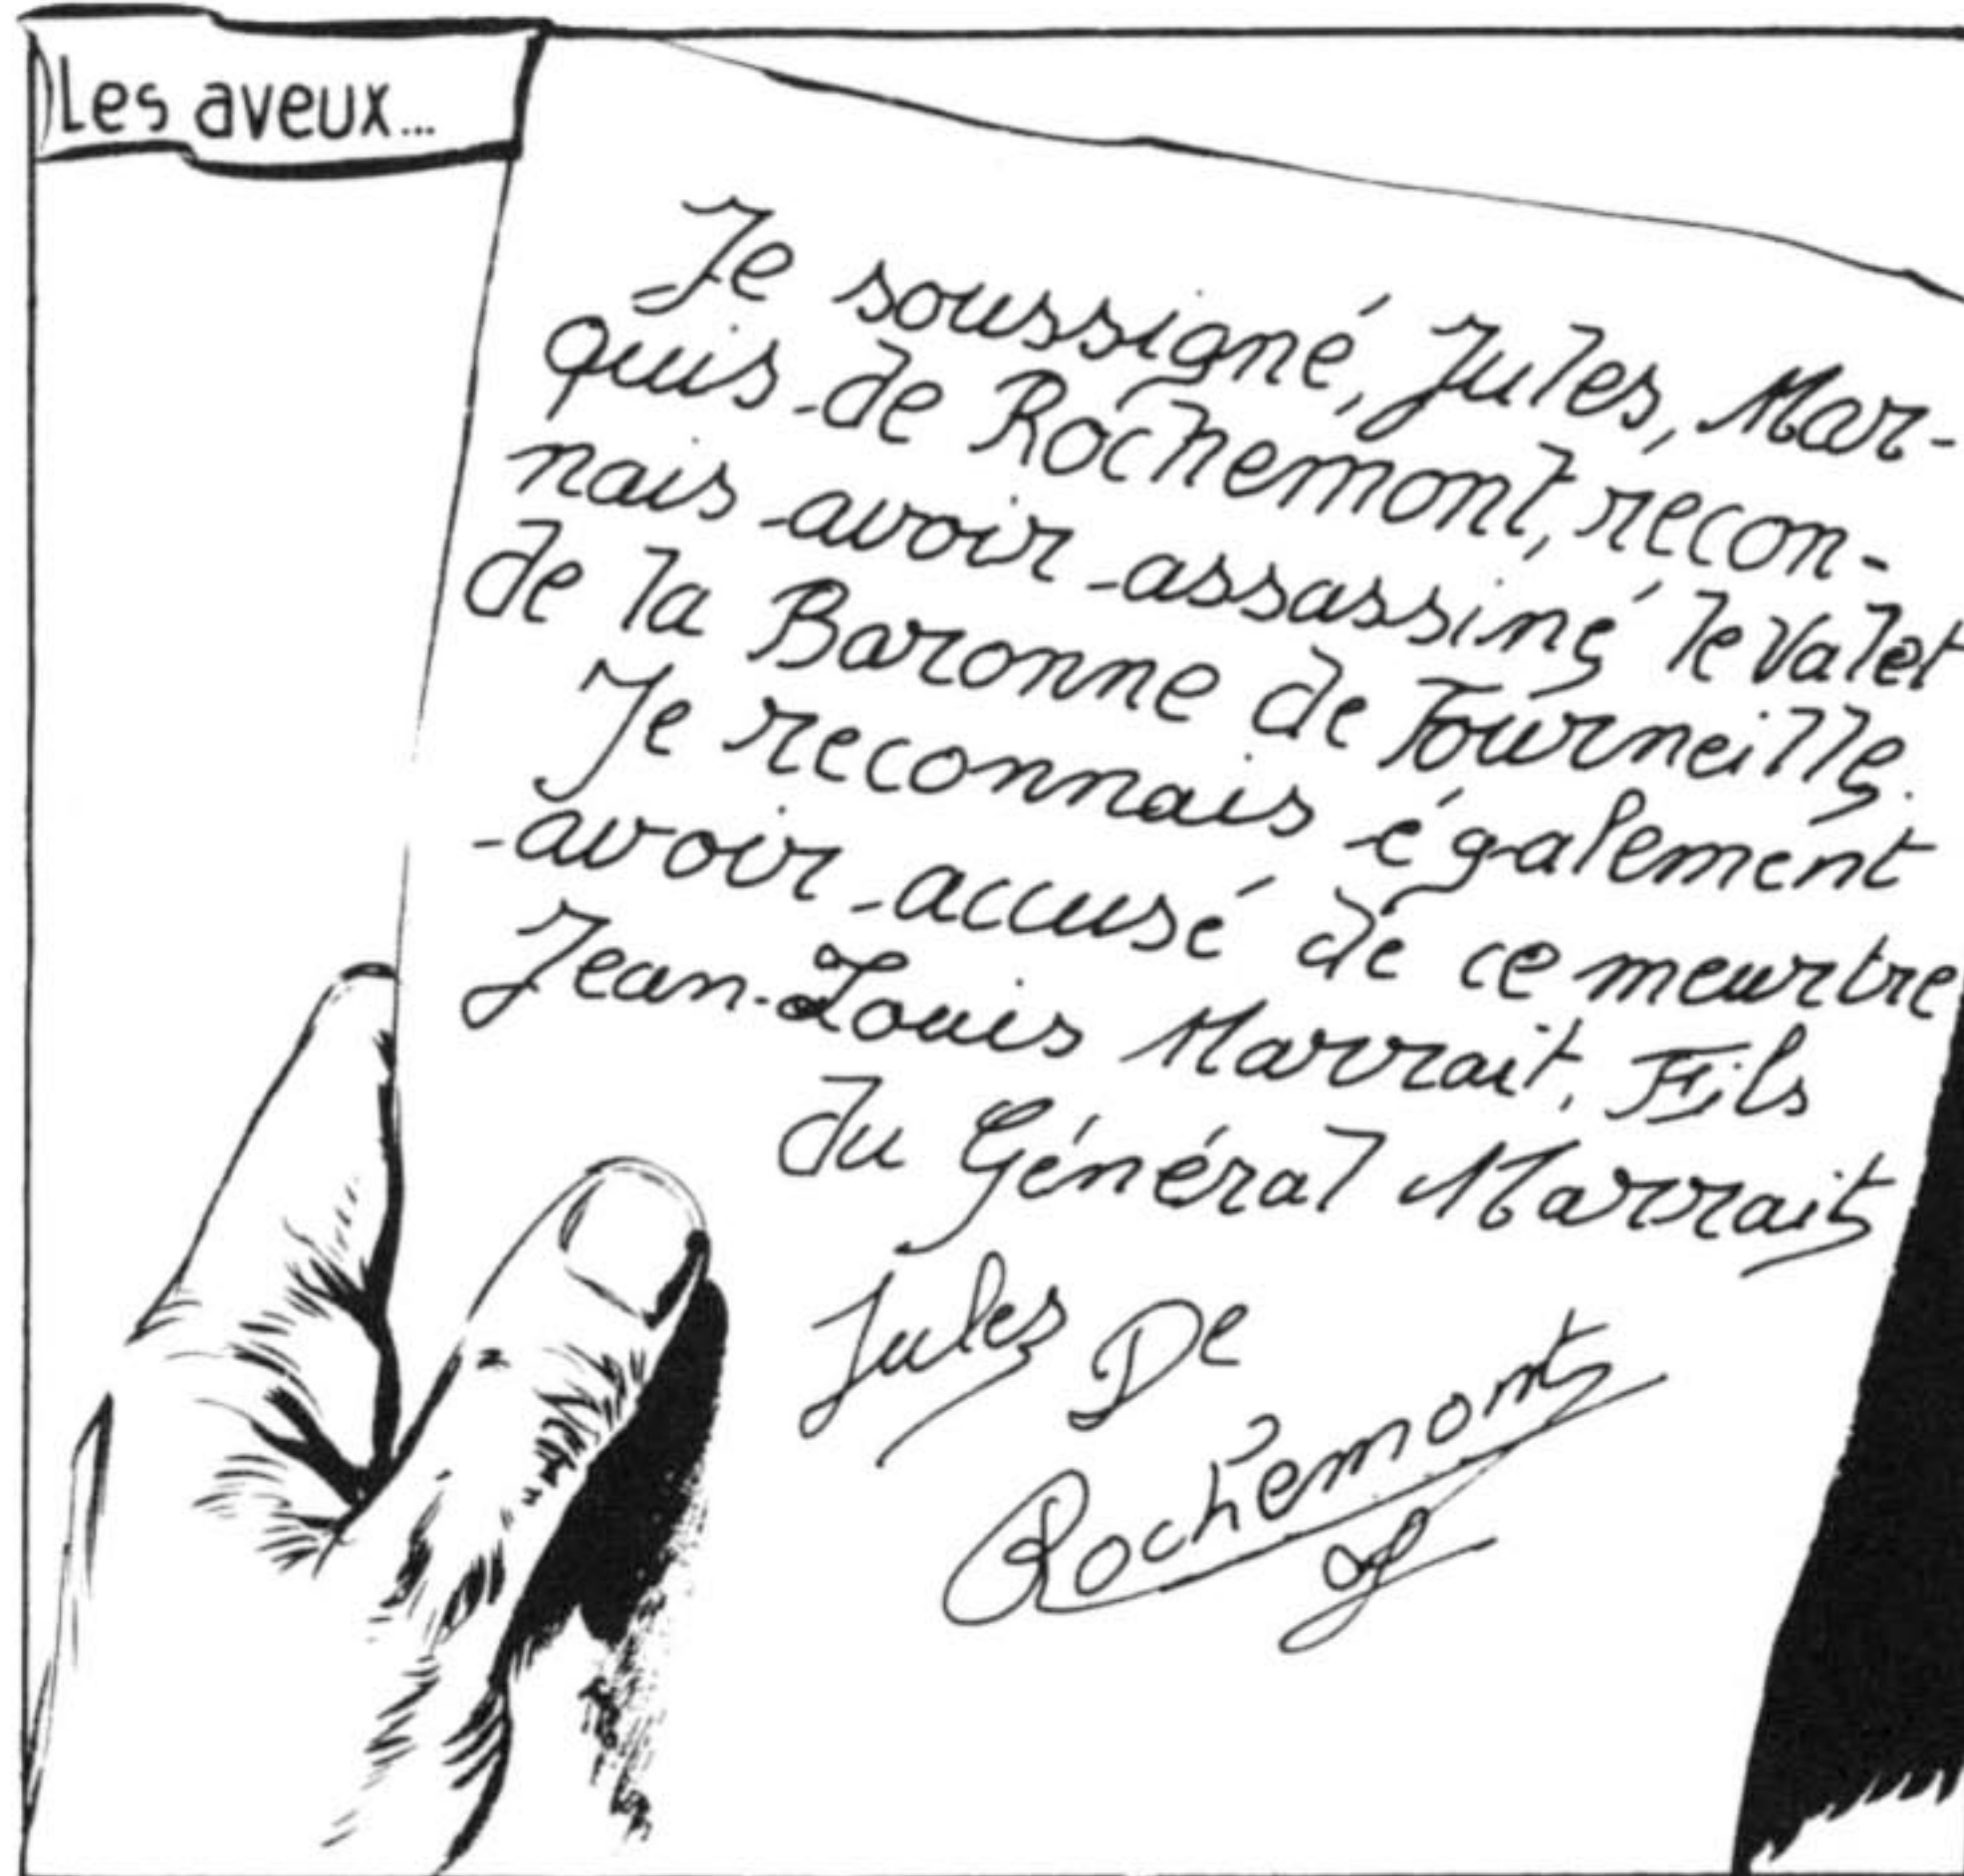 Les aveux...
Je soussigné, Jules, Mar-
quis de Rochemont, recon-
nais avoir assassiné le valet
de la Baronne de Fourneille.
Je reconnais également
avoir accusé de ce meurtre
Jean-Louis Marrait, Fils
du Général Marrait
Jules De
Rochemont